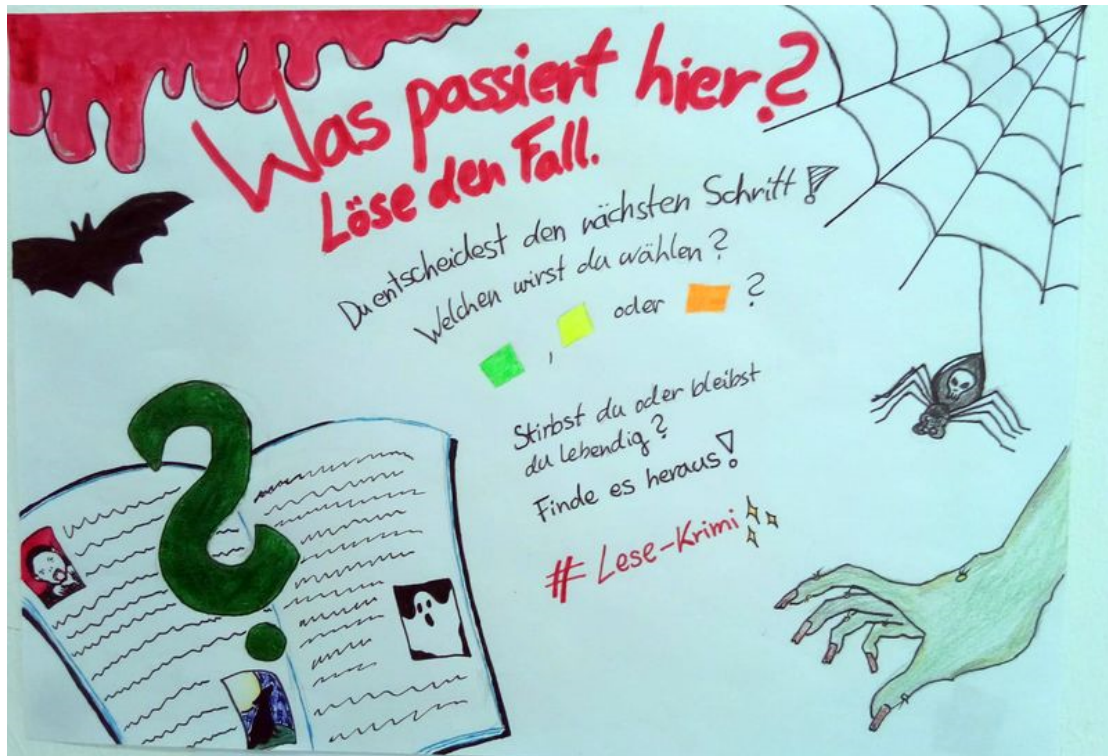 Was passiert hier?
Löse den Fall.
Du entscheidest den nächsten Schritt!
Welchen wirst du wählen?
, oder ?
Stirbst du oder bleibst
du lebendig?
Finde es heraus!
# Lese-Krimi